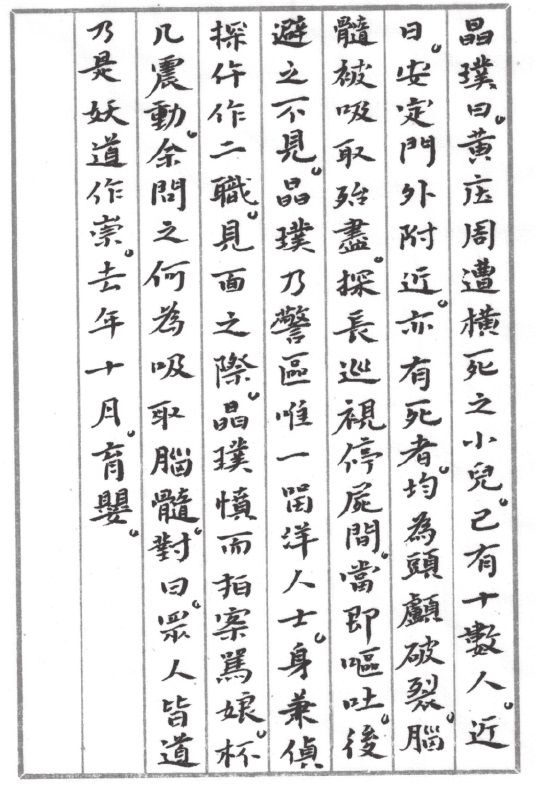 晶璞曰。黃庄周遭橫死之小兒。已有十數人。近
日。安定門外附近。亦有死者。均為頭顱破裂。腦
髓被吸取殆盡。探長巡視停屍間。當即嘔吐。後
避之不見。晶璞乃警區唯一留洋人士。身兼偵
探仵作二職。見面之際。晶璞憤而拍案罵娘。杯
几震動。余問之何為吸取腦髓。對曰。眾人皆道
乃是妖道作祟。去年十月。育嬰。